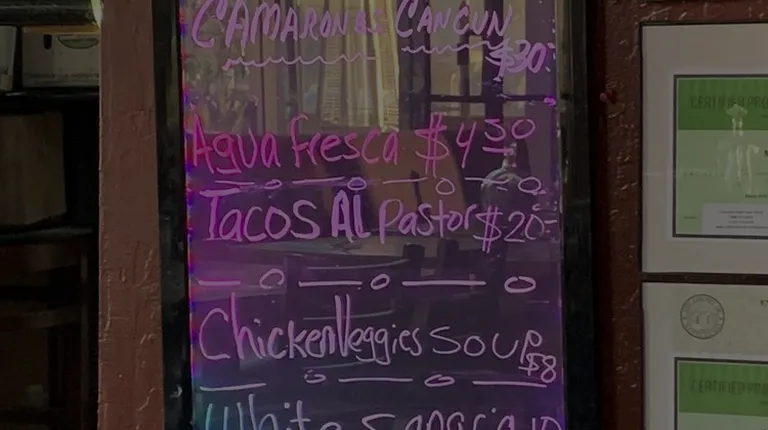 CAMARONES CANCUN
$30.
Agua fresca $4.50
TACOS Al Pastor $20-
Chicken Veggies SOUP
$8
White Sangria
CERTIFIED
CERTIFIED